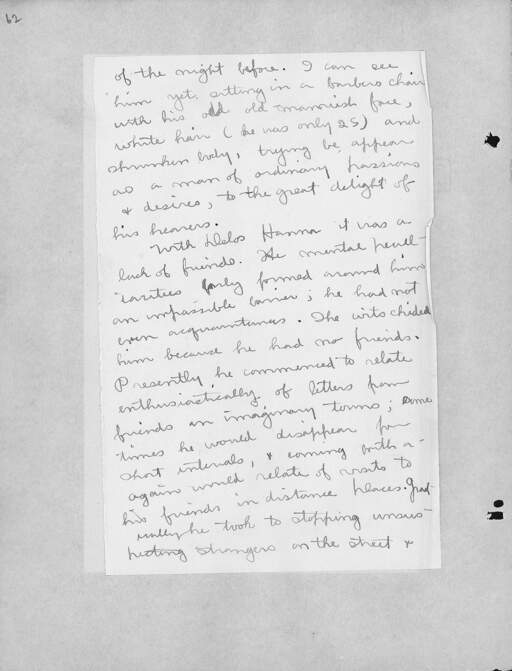 62
of the night before. I can see
him yet, sitting in a barbers chair
with his odd old mannish face,
white hair (he was only 25) and
shrunken body, trying be appear
as a man of ordinary passions
& desires, to the great delight of
his hearers.
With Delos Hanna it was a
lack of friends. His mental pecul-
iarities early formed around him
an impassible barrier; he had not
even acquaintances. The wits chided
him because he had no friends.
Presently he commenced to relate
enthusiastically of letters from
friends in imaginary towns; some
times he would disappear for
short intervals, & coming back a-
again would relate of visits to
his friends in distance places. Grad-
ually he took to stopping unsus-
pecting strangers on the street &